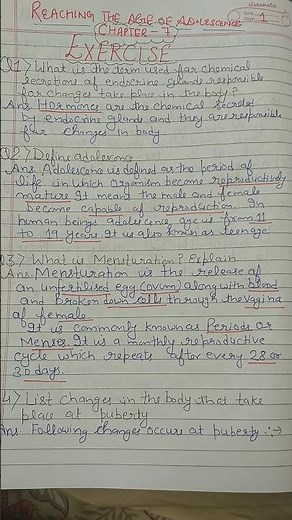 REACHING THE AGE OF ADOLESCENCE
CHAPTER - 7
1
EXERCISE
Q.1> What is the term used for chemical
secretions of endocrine glands responsible
for changes take place in the body?
Ans. Hormones are the chemical secreted
by endocrine glands and they are responsible
for changes in body
Q2.> Define adolescence
Ans. Adolescence is defined as the period of
life in which organism become reproductively
mature. It meant the male and female
become capable of reproduction. In
human beings adolescence age is from 11
to 19 years. It is also known as teenage
Q3.> What is Mensturation? Explain
Ans. Mensturation is the release of
an unfertilised egg (ovum) along with blood
and broken down cells through the vagina
of female.
It is commonly known as Periods or
Menses. It is a monthly reproductive
cycle which repeats after every 28 or
30 days.
4.> List changes in the body that take
place at puberty
Ans. Following changes occurs at puberty :->